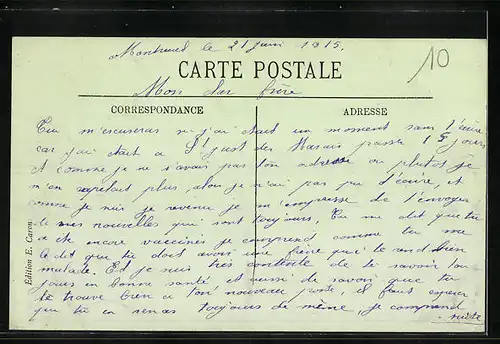 Montreuil le 21 juin 1915.
10
CARTE POSTALE
Mon cher frère
CORRESPONDANCE
ADRESSE
Tu m'excuseras si j'ai était un moment sans t'écrire
car j'ai était a St just des Marais passé 15 jours
et comme je ne savais pas ton adresse ou plutot je
m'en rapelait plus, alors je n'ai pas pu t'écrire, et
comme je suis je revenue je m'empresse de t'envoyer
de mes nouvelles qui sont toujours, Tu me dit que tu
a été encore vacciné je comprend comme tu me
le dit que tu doit avoir une fièvre qui te rend bien
malade. Et je suis très contente de te savoir tou
jours en bonne santé et aussi de savoir que tu
te trouve bien a ton nouveau poste, il faut espérer
que tu en seras toujours de même, je comprend
suite
Édition E. Caron